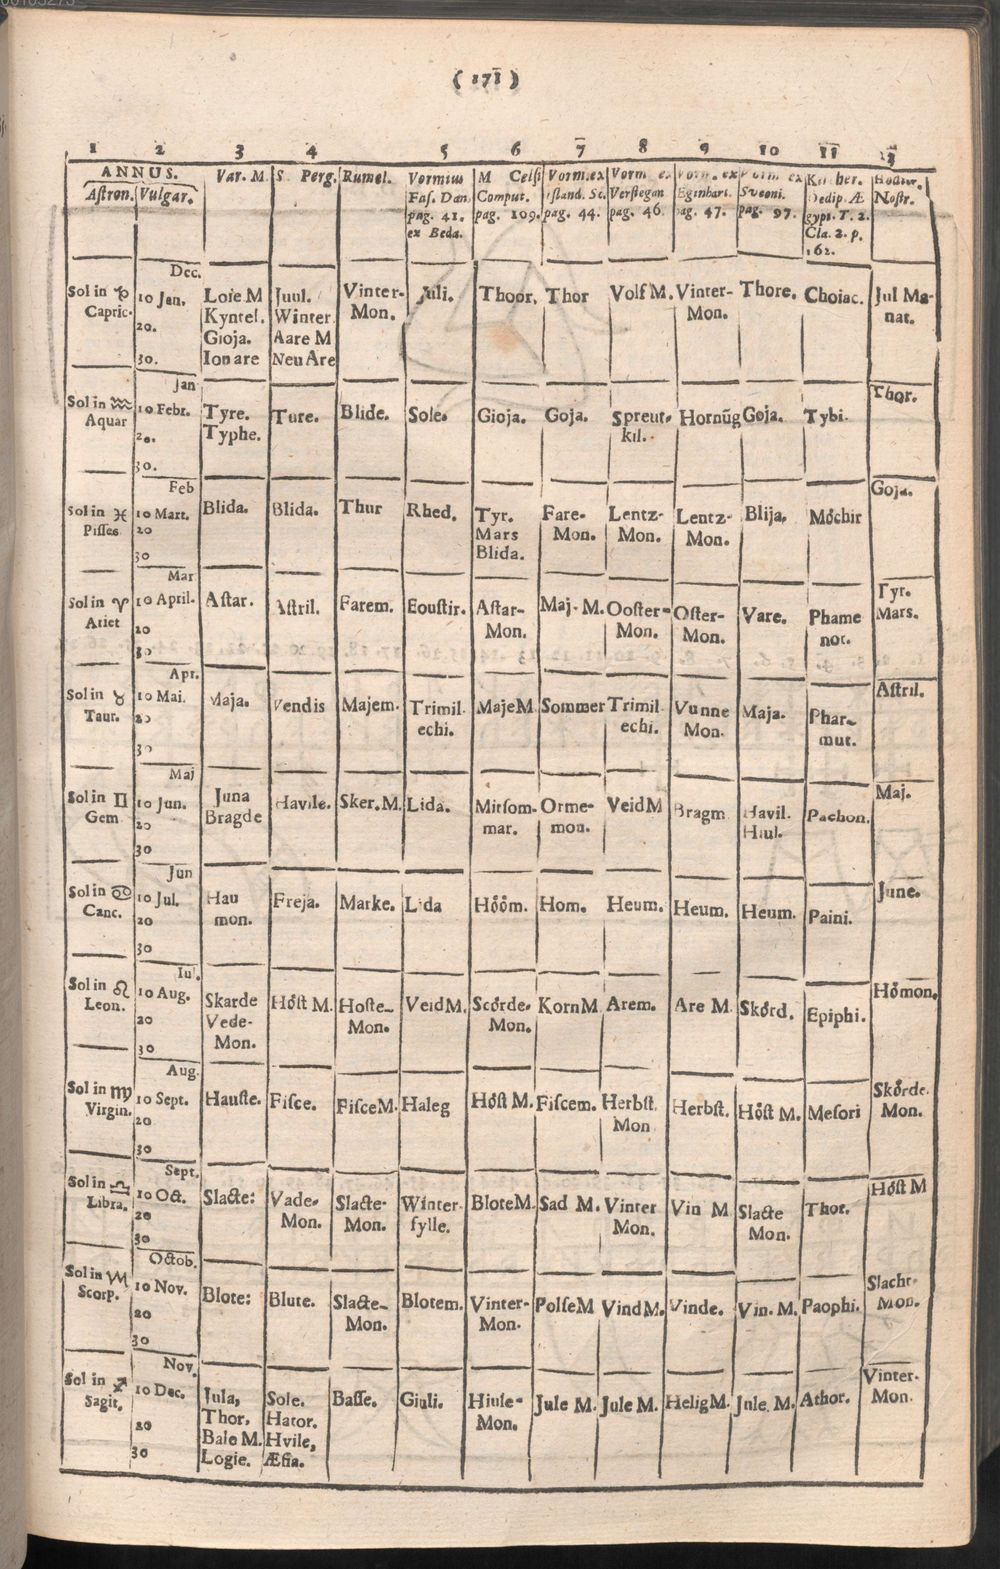 (171)
1 2 3 4 5 6 7 8 9 10 11 12
ANNUS. Var. M. S. Perg. Rumel. Vormius M Celsi Vorm.ex Vorm. ex Vorm. ex Vorm. ex Kircher. Hodier.
Astron. Vulgar. Fas. Dan. Comput. Island. Sc. Verstegan Eginhart. Sveoni. Oedip. Æ Nostr.
pag. 41. pag. 109. pag. 44. pag. 46. pag. 47. pag. 97. gypt. T. 2.
ex Beda. Cla. 2. p.
162.
Dec.
Sol in ♑ 10 Jan. Loie M Juul. Vinter- Juli. Thoor. Thor Volf M. Vinter- Thore. Choiac. Jul Ma-
Capric. Kyntel. Winter Mon. Mon. nat.
20. Gioja. Aare M
30. Ionare Neu Are
Jan
Sol in ♒ 10 Febr. Tyre. Ture. Blide. Sole. Gioja. Goja. Spreut- Hornūg Goja. Tybi. Thor.
Aquar Typhe. kil.
20.
30.
Feb
Sol in ♓ 10 Mart. Blida. Blida. Thur Rhed. Tyr. Fare- Lentz- Lentz- Blija. Móchir Goja.
Pisses 20 Mars Mon. Mon. Mon.
30 Blida.
Mar
Sol in ♈ 10 April. Astar. Astril. Farem. Eoustir. Astar- Maj. M. Ooster- Oster- Vare. Phame Tyr.
Ariet 20 Mon. Mon. Mon. not. Mars.
30
Apr.
Sol in ♉ 10 Mai. Maja. Vendis Majem. Trimil MajeM Sommer Trimil Vunne Maja. Phar- Astril.
Taur. 20 echi. echi. Mon. mut.
30
Maj
Sol in ♊ 10 Jun. Juna Havile. Sker. M. Lida. Mitsom- Orme- VeidM Bragm Havil. Pachon. Maj.
Gem 20 Bragde mar. mon. Hiul.
30
Jun
Sol in ♋ 10 Jul. Hau Freja. Marke. Lida Hóóm. Hom. Heum. Heum. Heum. Paini. June.
Canc. 20 mon.
30
Iul.
Sol in ♌ 10 Aug. Skarde Hóst M. Hoste- VeidM. Scórde- KornM Arem. Are M. Skórd. Epiphi. Hómon.
Leon. 20 Vede- Mon. Mon.
30 Mon.
Aug.
Sol in ♍ 10 Sept. Hauste. Fisce. FisceM. Haleg Hóst M. Fiscem. Herbst. Herbst. Hóst M. Mesori Skórde.
Virgin. 20 Mon Mon.
30
Sept.
Sol in ♎ 10 Oct. Slacte: Vade- Slacte- Winter- BloteM. Sad M. Vinter Vin M Slacte Thot. Hóst M
Libra. 20 Mon. Mon. fylle. Mon. Mon.
30
Octob.
Sol in ♏ 10 Nov. Blote: Blute. Slacte- Blotem. Vinter- PolseM VindM. Vinde. Vin. M. Paophi. Slacht-
Scorp. 20 Mon. Mon. Mon.
30
Nov.
Sol in ♐ 10 Dec. Jula, Sole. Basse. Giuli. Hiule- Jule M. Jule M. HeligM. Jule. M. Athor. Vinter-
Sagit. 20 Thor. Hator. Mon. Mon.
Bale M. Hvile,
30 Logie. Æsia.